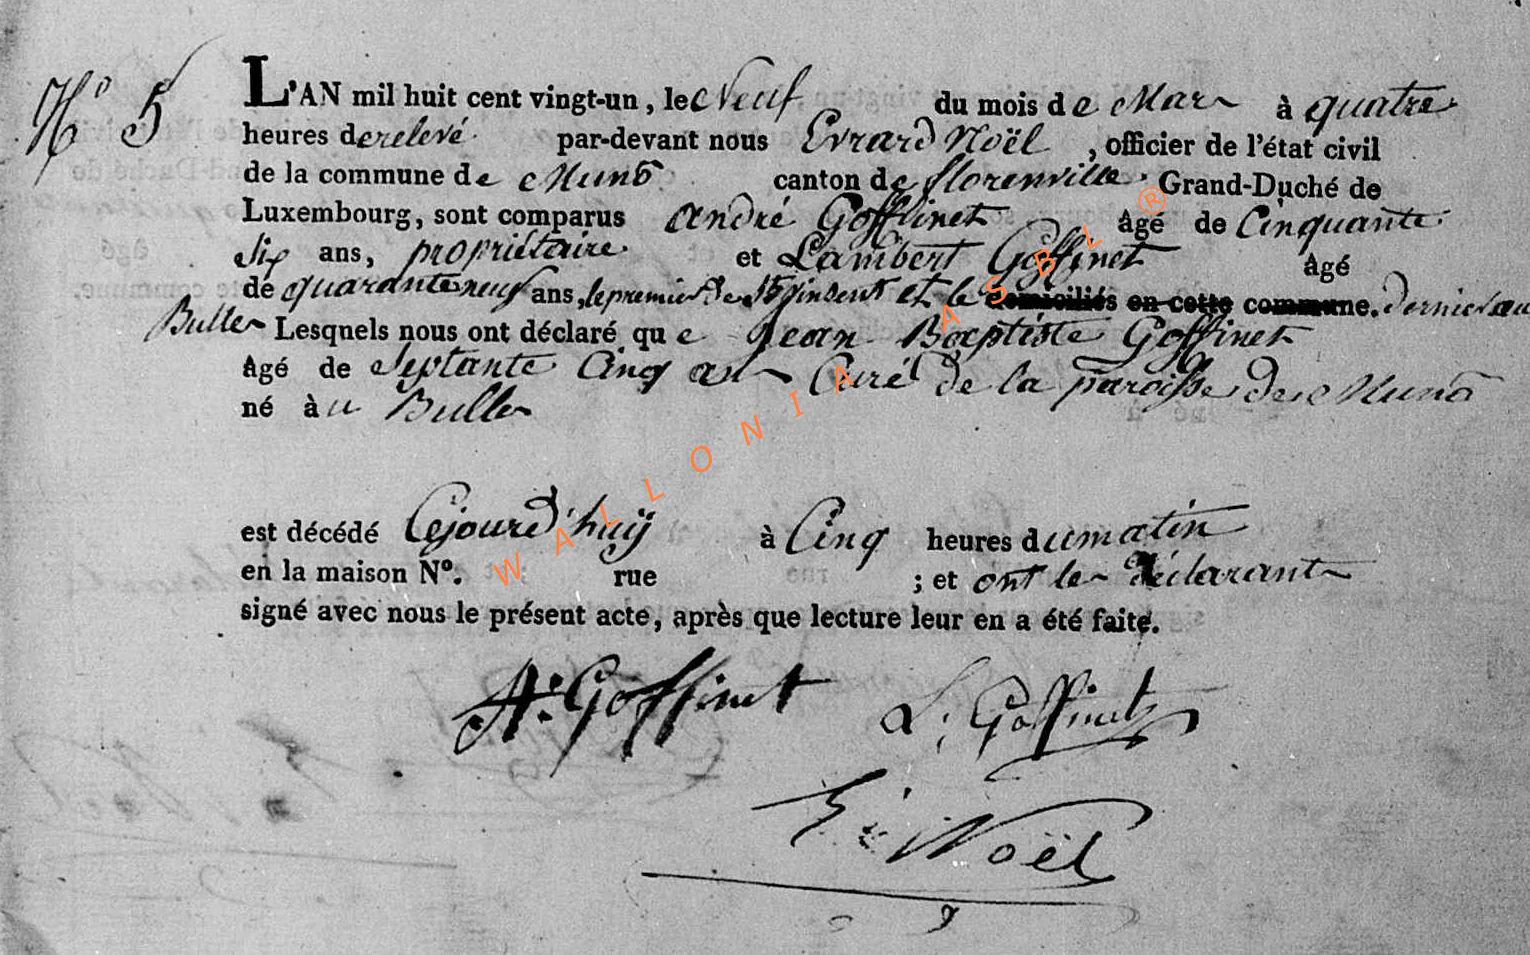 N° 5
L'AN mil huit cent vingt-un, le Neuf du mois de Mars à quatre
heures de relevé par-devant nous Evrard Noël, officier de l'état civil
de la commune de Muno canton de florenville. Grand-Duché de
Luxembourg, sont comparus andré Goffinet âgé de Cinquante
Six ans, propriétaire et Lambert Goffinet âgé
de quarante neuf ans, le premier de St Vinsent et le domiciliés en cette commune. dernier au
Bulles Lesquels nous ont déclaré que Jean Baptiste Goffinet
âgé de Septante Cinq ans Curé de la paroisse de Muno
né à u Bulles
est décédé Cejourd'huÿ à Cinq heures du matin
en la maison N°. rue ; et ont les déclarants
signé avec nous le présent acte, après que lecture leur en a été faite.
A: Goffinet L: Goffinet
E: Noël
WALLONIA ASBL ®